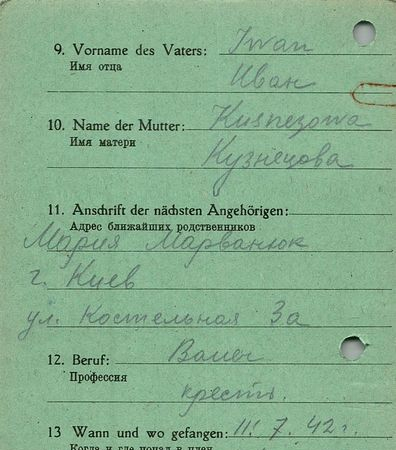 9. Vorname des Vaters: Iwan
Имя отца
Иван
10. Name der Mutter: Kusnezowa
Имя матери
Кузнецова
11. Anschrift der nächsten Angehörigen:
Адрес ближайших родственников
Мария Марванюк
г. Киев
ул. Костельная 3а
12. Beruf: Bauer
Профессия
крестьі.
13 Wann und wo gefangen: 11. 7. 42 г.
Когда и где попал в плен